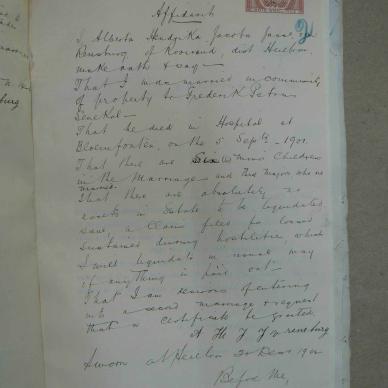 Affidavit
I, Alberta Hendrika Jacoba Janse van
Rensburg of Rooiwal, dist Heilbron,
make oath & say -
That I was married in community
of property to Frederik Petrus
Senekal -
That he died in Hospital at
Bloemfontein, on the 5 Septb. 1901
That there are Six (6) minor Children
in the Marriage - and two majors who are
married.
That there are absolutely no
assets in Estate to be liquidated
save, a Claim filed for losses
sustained during hostilities, which
I will liquidate in usual way
if anything is paid out
That I am desirous of entering
into a second marriage & request
that a certificate be granted
A H J J v rensburg
Sworn at Heilbron 20 Decr 190
Before Me,